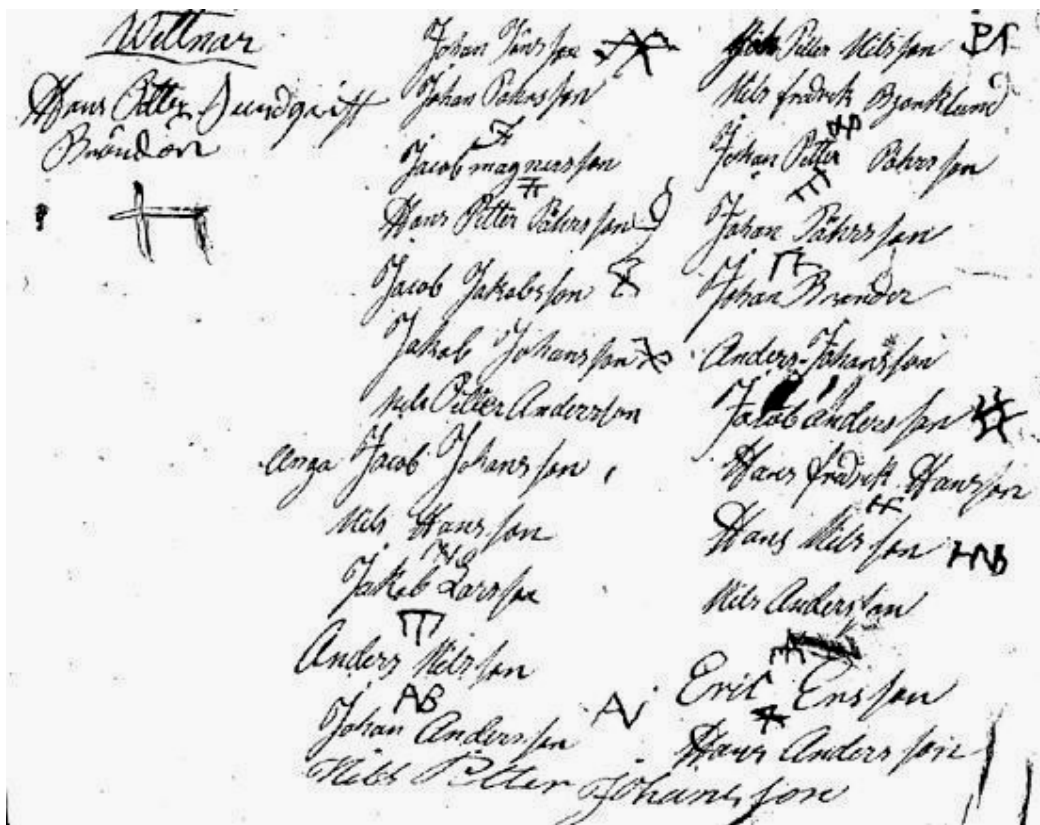 Wittnar
Hans Petter Sundqvist
Brändön
Johan Jönsson
Johan Pährsson
Jacob magnusson
Hans Petter Pährsson
Jacob Jakobsson
Jakob Johansson
Nils Petter Andersson
unga Jacob Johansson
Nils Hansson
Jakob Larsson
Anders Nilsson
AB
Johan Andersson
AN
Nils Petter Johansson
Petter Nilsson
Nils fredrik Bjonklund
Johan Petter Pährsson
Johan Pährsson
Johan Brender
Anders Johansson
Jacob Andersson
Hans fredrick Hansson
Hans Nilsson HNB
Nils Andersson
Eric Ersson
Hans Andersson